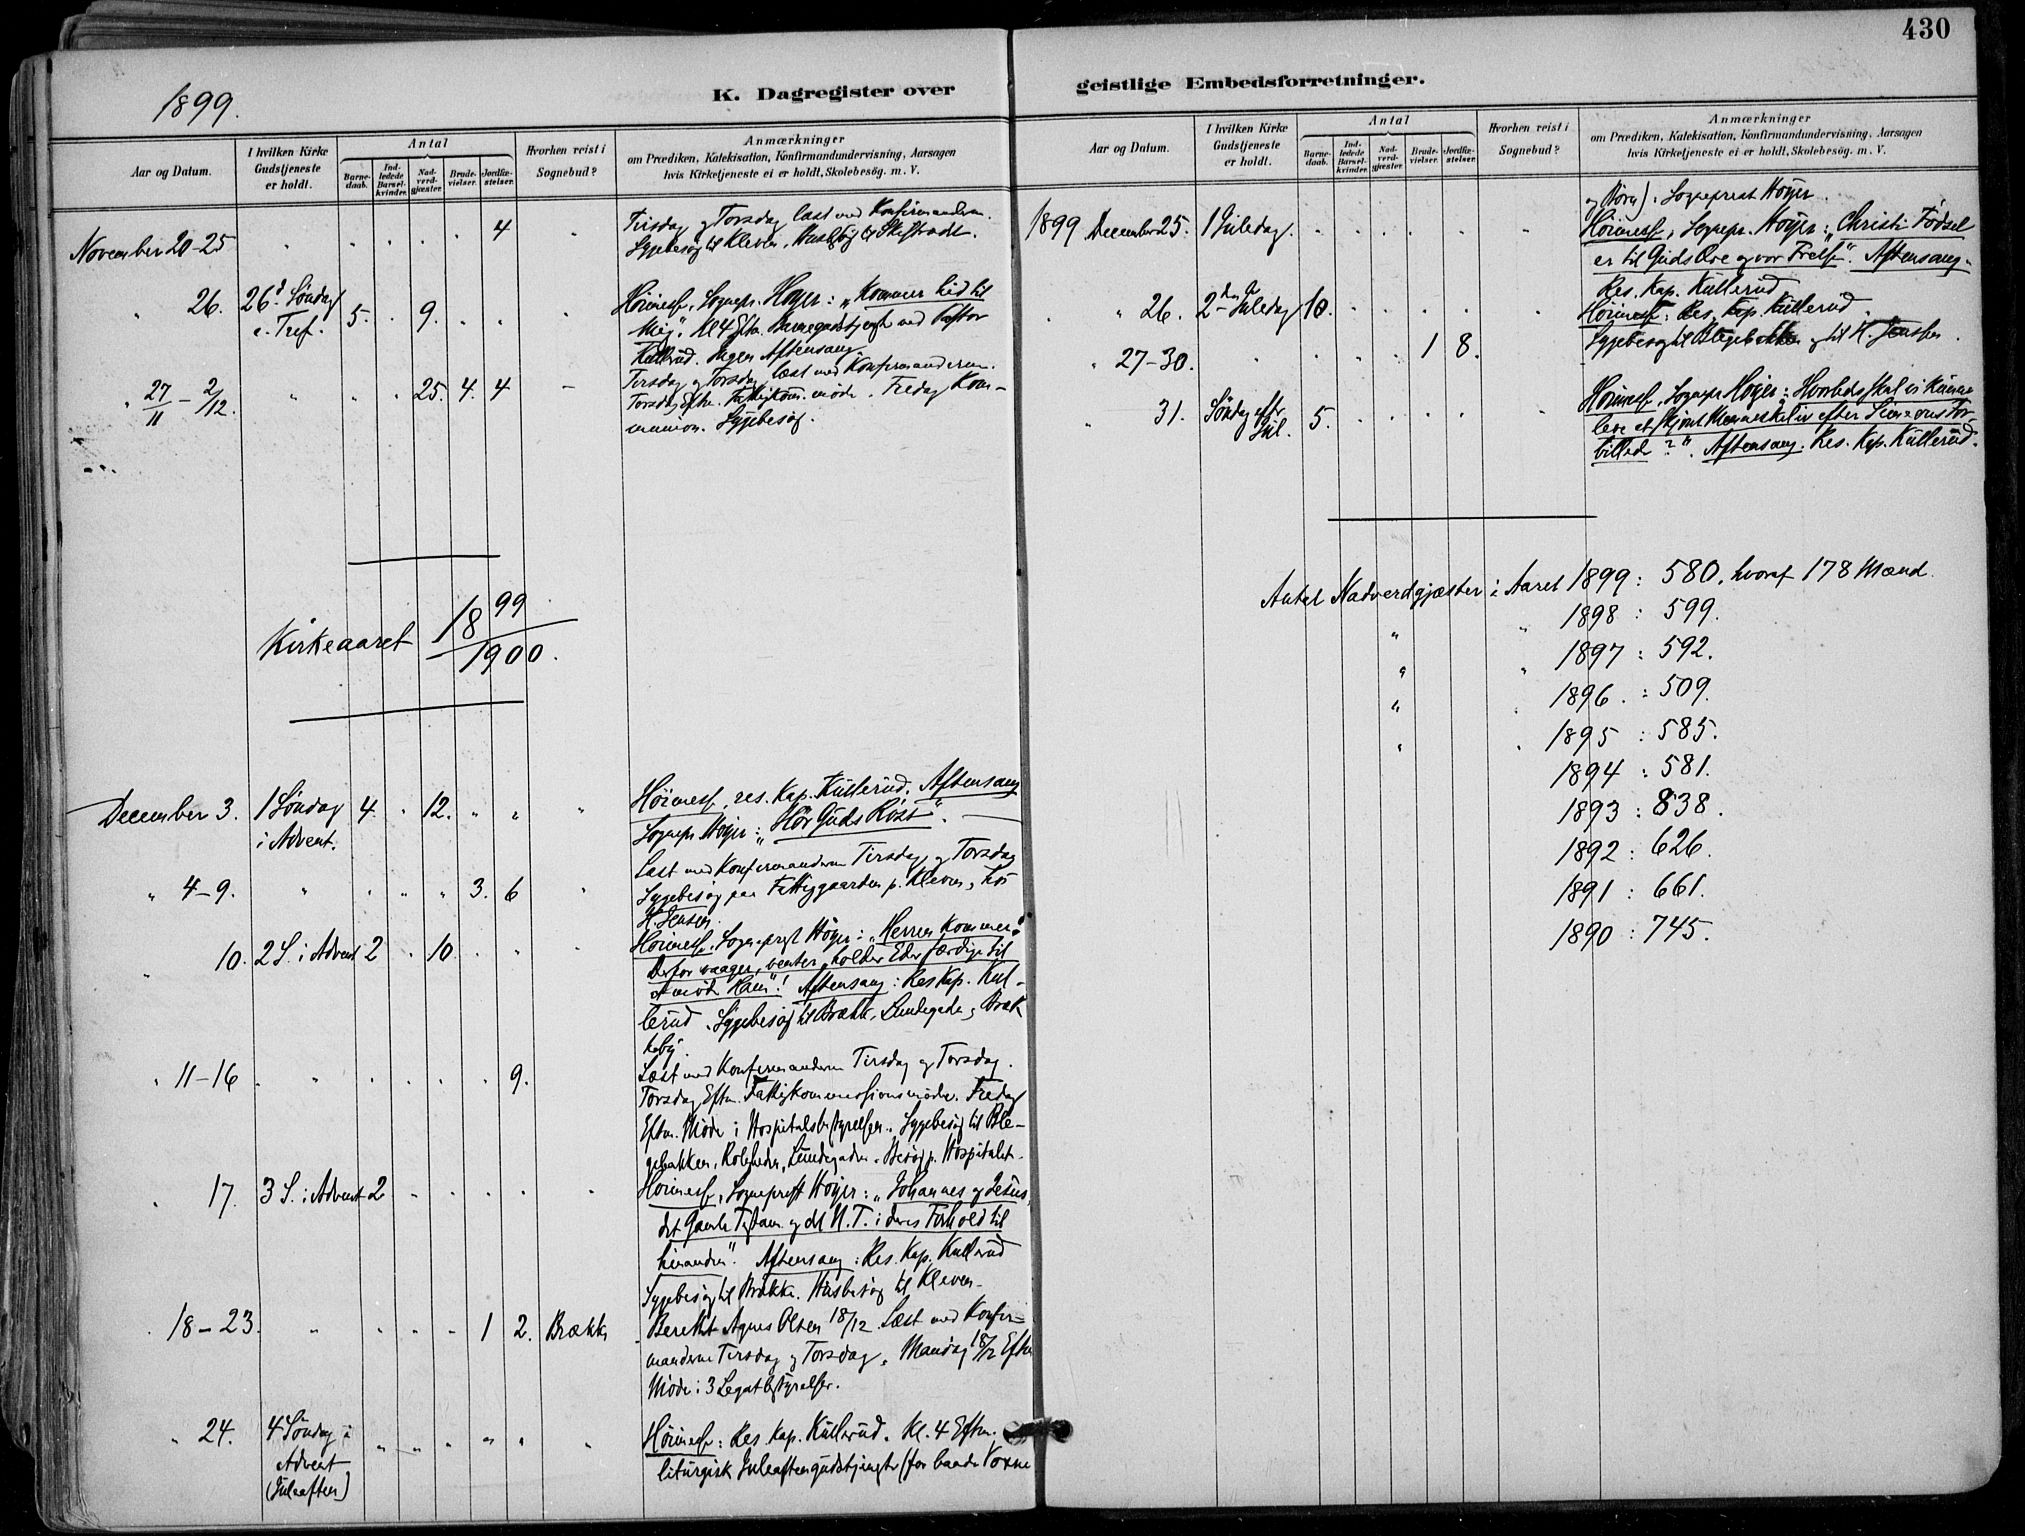 430
1899.
K. Dagregister over geistlige Embedsforretninger.
Aar og Datum.
I hvilken Kirke Gudstjeneste er holdt.
Antal
Barne-daab.
Ind-ledede Barsel-kvinder.
Nad-verd-gjæster.
Brude-vielser.
Jordfæ-stelser.
Hvorhen reist i Sognebud?
Anmærkninger
om Prædiken, Katekisation, Konfirmandundervisning, Aarsagen
hvis Kirketjeneste ei er holdt, Skolebesøg. m. V.
November 20-25 " " " " " 4 " Tirsdag og Torsdag læst med Konfirmanderne.
Sygebesøg til Kleven. Husbesøg til
" 26. 26d Søndag e. Tref. 5. " 9. " " " Høimesse, Sognepr. Høyer: "Kommer hid til
Mig". Kl 4 Eftm. Barnegudstjeneste ved Pastor
Kullerud. Ingen Aftensang.
" 27/11 - 2/12. " " " 25. 4. 4 - Tirsdag og Torsdag læst med Konfirmanderne.
Torsdag Eftm. Fattigkom. møde. Fredag Kom-
munion. Sygebesøg.
Kirkeaaret 1899/1900.
December 3. 1 Søndag i Advent. 4. " 12. " " " Høimesse, res. Kap. Kullerud. Aftensang
Sognepr. Høyer: "Hør Guds Røst".
Læst med Konfirmanderne Tirsdag og Torsdag
" 4-9. " " " " 3. 6 " Sygebesøg paa Fattiggaarden p. Kleven, hos
H. Jensen.
" 10. 2 S. i Advent 2 " 10. " " Høimesse. Sogneprest Høyer: "Herren kommer!
Derfor vaager, venter, holder Eder færdige til
at møde Ham"! Aftensang: Res Kap. Kul-
lerud. Sygebesøg til Brække, Lundegade, Bræk
keby.
" 11-16 " " " " " " 9. Læst med Konfirmanderne Tirsdag og Torsdag.
Torsdag Eftm. Fattigkommissionsmøde. Fredag
Eftm. Møde i Hospitalsbestyrelsen. Sygebesøg til Ble-
gebakken, Roligheden, Lundegaden. Besøg p. Hospitalet.
" 17. 3 S. i Advent 2 " " " " " Høimesse, Sogneprest Høyer: "Johannes og Jesus,
det Gamle Testam. og det N.T. i deres Forhold til
hinanden". Aftensang: Res. Kap. Kullerud
Sygebesøg til Brække. Husbesøg til Kleven.
" 18-23. " " " " 1 2. Brække Berettet Agnes Olsen 18/12. Læst med Konfir-
manderne Tirsdag og Torsdag. Mandag 18/12 Eftm
Møde i 3 Legatbestyrelser.
" 24. 4 Søndag i Advent (Juleaften) " " " " " " Høimesse: Res. Kap. Kullerud. Kl. 4 Eftm.
liturgisk Juleaftengudstjeneste (for baade Voxne
Aar og Datum.
I hvilken Kirke Gudstjeneste er holdt.
Antal
Barne-daab.
Ind-ledede Barsel-kvinder.
Nad-verd-gjæster.
Brude-vielser.
Jordfæ-stelser.
Hvorhen reist i Sognebud?
Anmærkninger
om Prædiken, Katekisation, Konfirmandundervisning, Aarsagen
hvis Kirketjeneste ei er holdt, Skolebesøg. m. V.
og Børn). Sogneprest Høyer.
1899 December 25. 1 Juledag. " " " " " " Høimesse, Sognepr. Høyer: "Christi Fødsel
er til Guds Ære og vor Frelse". Aftensang.
Res. Kap. Kullerud.
" 26. 2den Juledag 10. " " " " " Høimesse: Res. Kap. Kullerud.
" 27-30. " " " " 1 8. Sygebesøg til Blegebakken og til H. Jensen.
" 31. Søndag eftr Jul. 5. " " " " " Høimesse. Sognepr Høyer: "Hvorledes skal vi kunne
leve et skjønt Menneskeliv efter Simeons For-
billede?". Aftensang: Res. Kap. Kullerud.
Antal Nadverdgjæster i Aaret 1899: 580, hvoraf 178 Mænd.
" " 1898: 599.
" " 1897: 592.
" " 1896.: 509.
" " 1895: 585.
1894: 581.
1893: 838.
1892: 626.
1891: 661.
1890: 745.